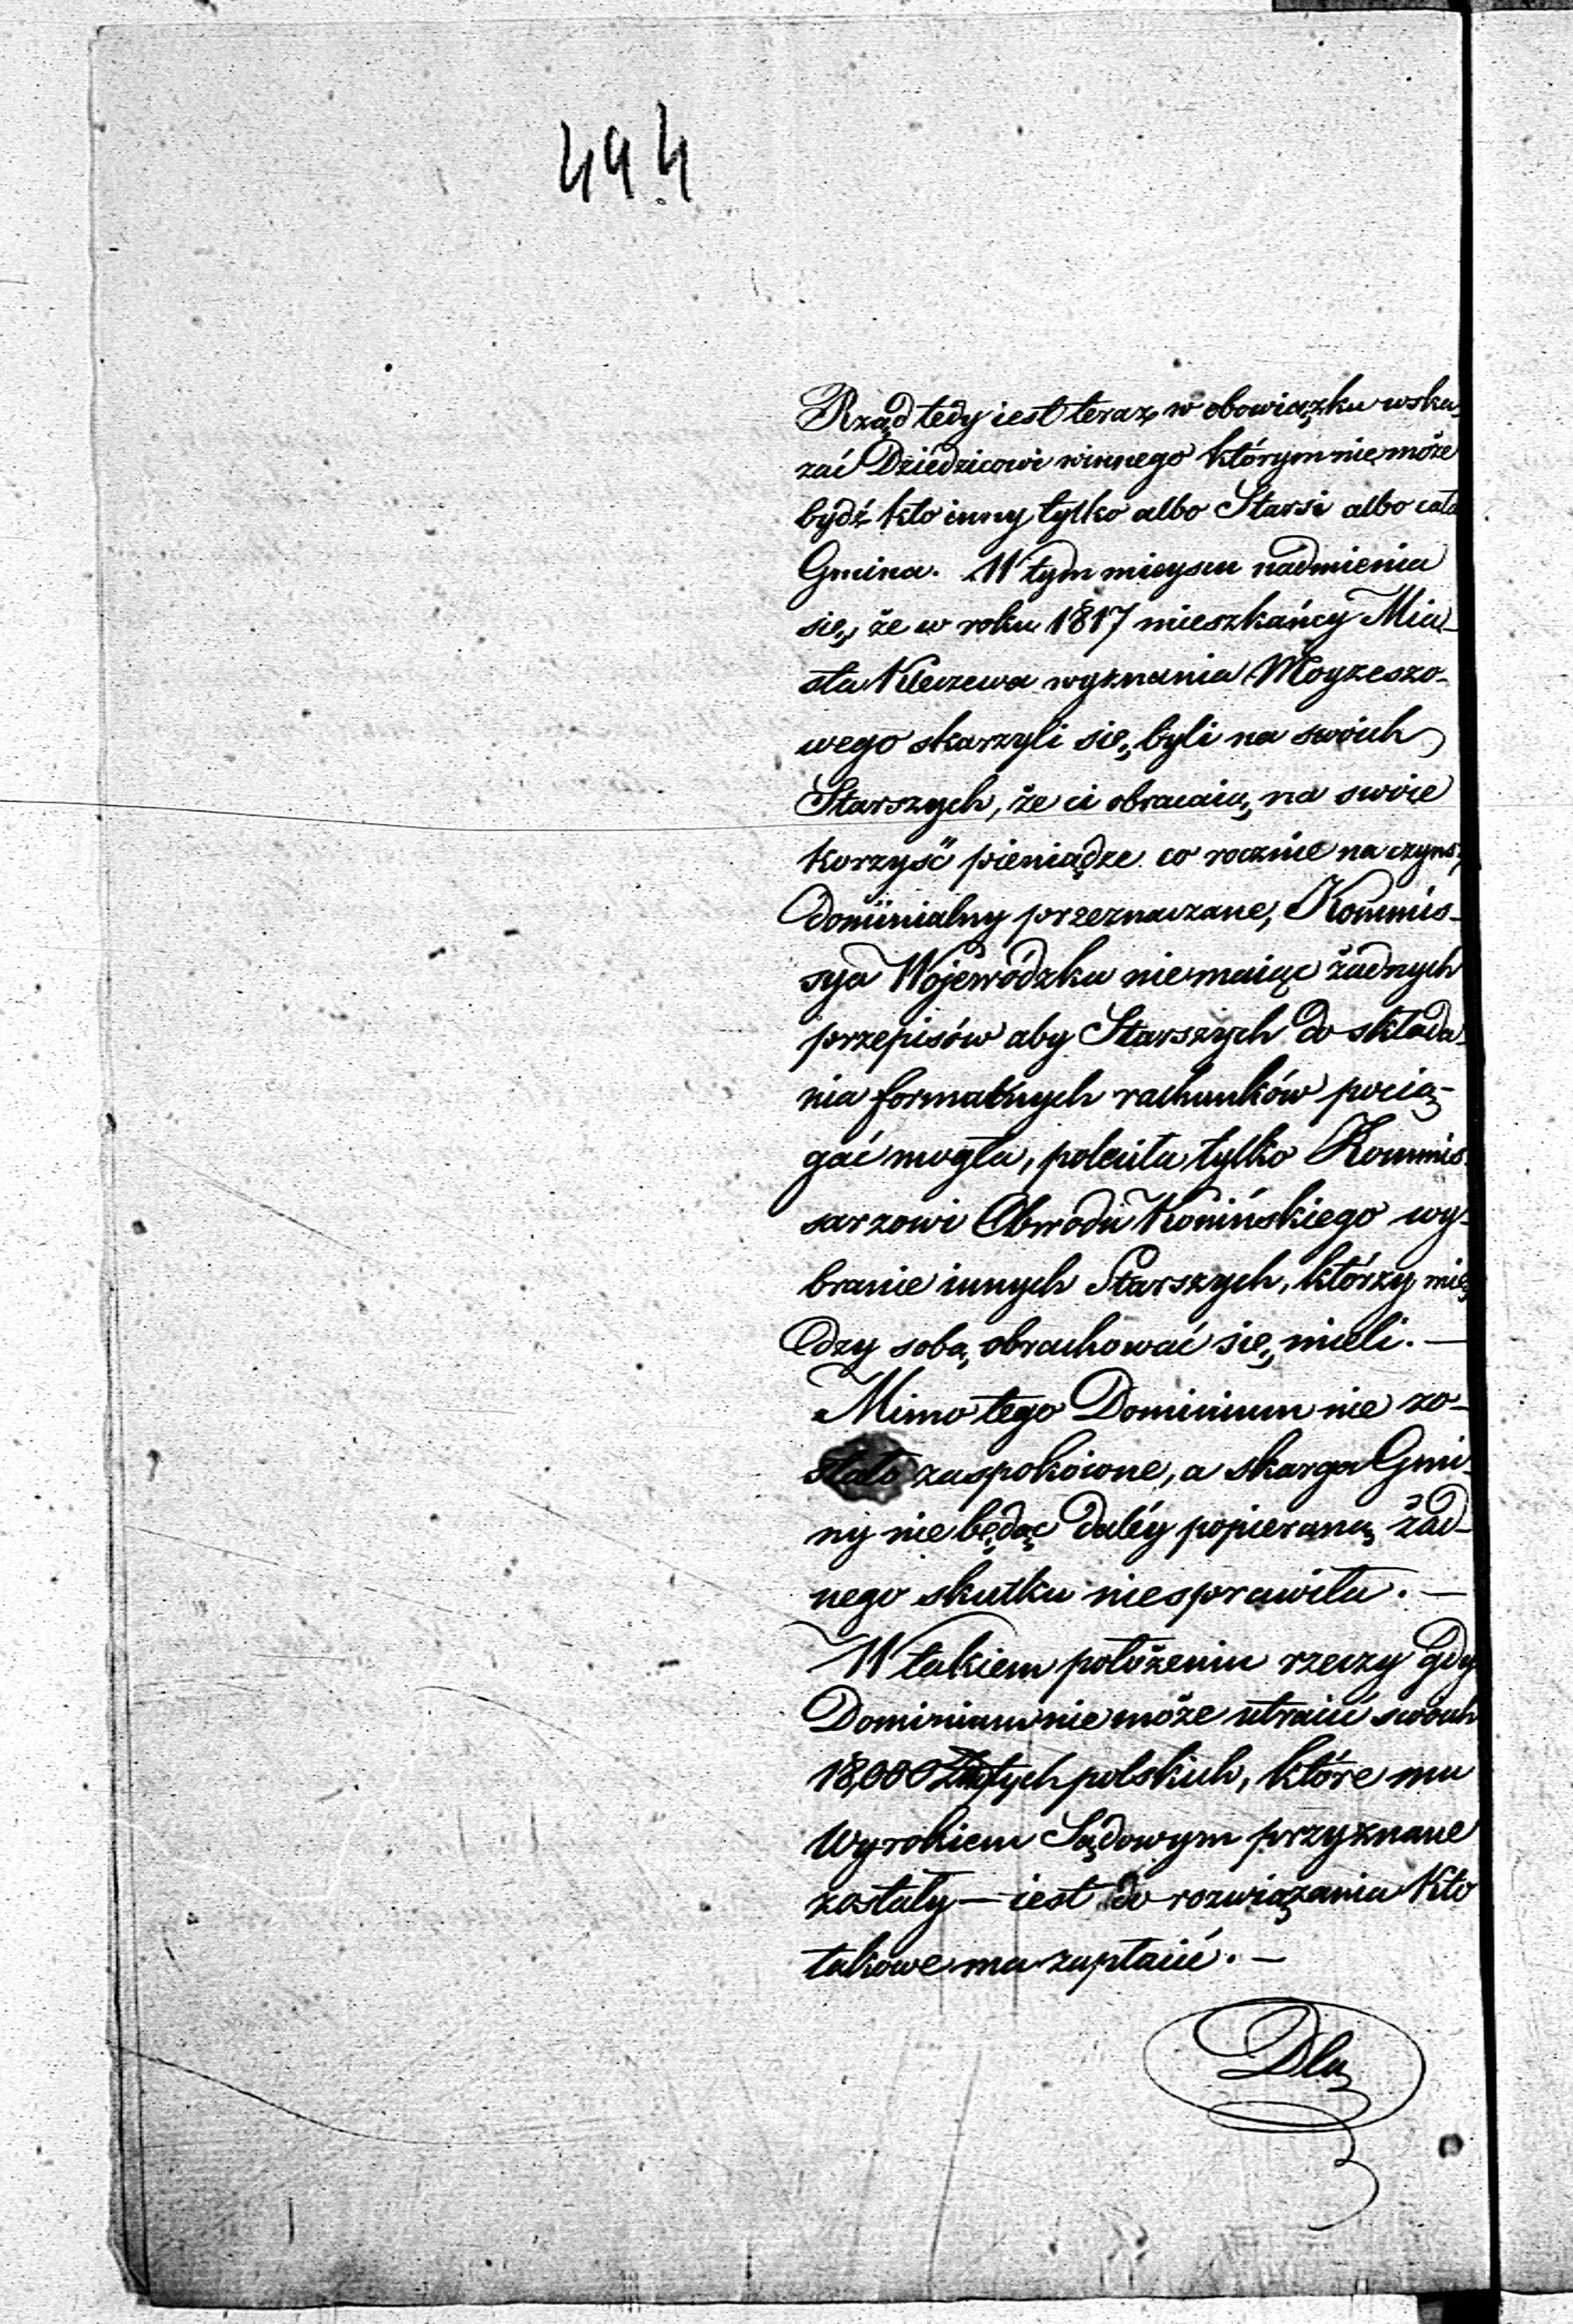 494
Rząd tedy iest teraz w obowiązku wska-
zać Dziedzicowi winnego którym nie może
bydź kto inny tylko albo Starsi albo cała
Gmina. W tym mieyscu nadmienia
się, że w roku 1817 mieszkańcy Mia-
sta Kleczewa wyznania Moyżeszo-
wego skarzyli się byli na swoich
Starszych, że ci obracaią na swoie
korzyść pieniądze co rocznie na czynsz
dominialny przeznaczane, Kommis-
sya Wojewódzka nie maiąc żadnych
przepisów aby Starszych do składa-
nia formalnych rachunków pocią-
gać mogła, poleciła tylko Kommis-
sarzowi Obwodu Konińskiego wy-
branie innych Starszych, którzy mię-
dzy sobą obrachować się mieli. —
Mimo tego Dominium nie zo-
stało zaspokoione, a skarga Gmi-
ny nie będąc daléy popieraną żad-
nego skutku niesprawiła. —
W takiem położeniu rzeczy gdy
Dominium nie może utracić swoich
18,000 Złotych polskich, które mu
Wyrokiem Sądowym przyznane
zostały — iest do rozwiązania kto
takowe ma zapłacić. —
Dla